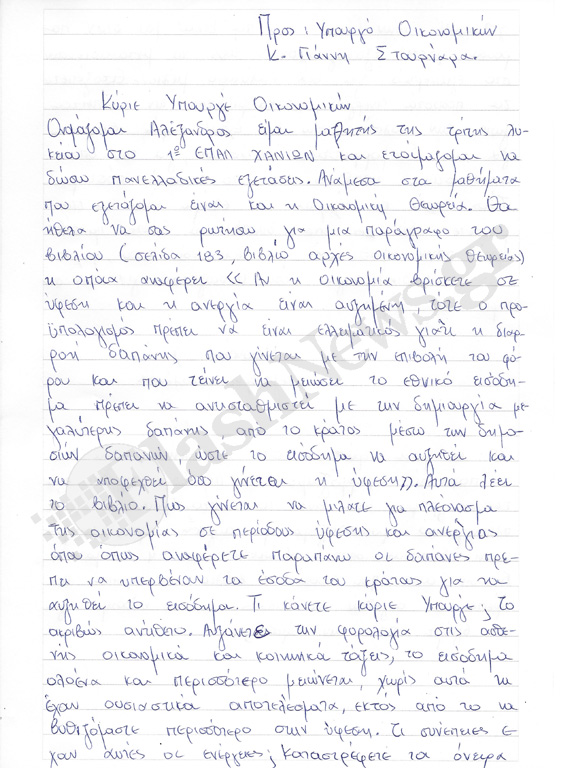 Προς: Υπουργό Οικονομικών
Κ. Γιάννη Στουρνάρα.
Κύριε Υπουργέ Οικονομικών
Ονομάζομαι Αλέξανδρος είμαι μαθητής της τρίτης λυ-
κείου στο 1ο ΕΠΑΛ ΧΑΝΙΩΝ και ετοιμάζομαι να
δώσω πανελλαδικές εξετάσεις. Ανάμεσα στα μαθήματα
που εξετάζομαι είναι και η Οικονομική Θεωρία. Θα
ήθελα να σας ρωτήσω για μια παράγραφο του
βιβλίου (σελίδα 183, βιβλίο αρχές οικονομικής θεωρίας)
η οποία αναφέρει << Αν η οικονομία βρίσκετε σε
ύφεση και η ανεργία είναι αυξημένη, τότε ο προ-
ϋπολογισμός πρέπει να είναι ελλειματικός γιατί η διαρ-
ροή δαπάνης που γίνεται με την επιβολή του φό-
ρου και που τείνει να μειώσει το εθνικό εισόδη-
μα πρέπει να αντισταθμιστεί με την δημιουργία με-
γαλύτερης δαπάνης από το κράτος μέσω των δημο-
σιών δαπανών ώστε το εισόδημα να αυξηθεί και
να υποφεχθεί όσο γίνεται η ύφεση>>. Αυτά λέει
το βιβλίο. Πως γίνεται να μιλάτε για πλεόνασμα
της οικονομίας σε περίοδους ύφεσης και ανεργίας
όπου όπως αναφέρετε παραπάνω οι δαπάνες πρέ-
πει να υπερβένουν τα έσοδα του κράτους για να
αυξηθεί το εισόδημα. Τι κάνετε κύριε Υπουργέ; το
ακριβώς αντίθετο. Αυξάνετε την φορολογία στις ασθε-
νής οικονομικά και κοινωνικά τάξεις, το εισόδημα
ολοένα και περισσότερο μειώνεται, χωρίς αυτά να
έχουν ουσιαστικά αποτελέσματα, εκτός από το να
βυθιζόμαστε περισσότερο στην ύφεση. Τι συνέπειες έ-
χουν αυτές οι ενέργειες; Καταστρέφετε τα όνειρα
FlashNews.gr